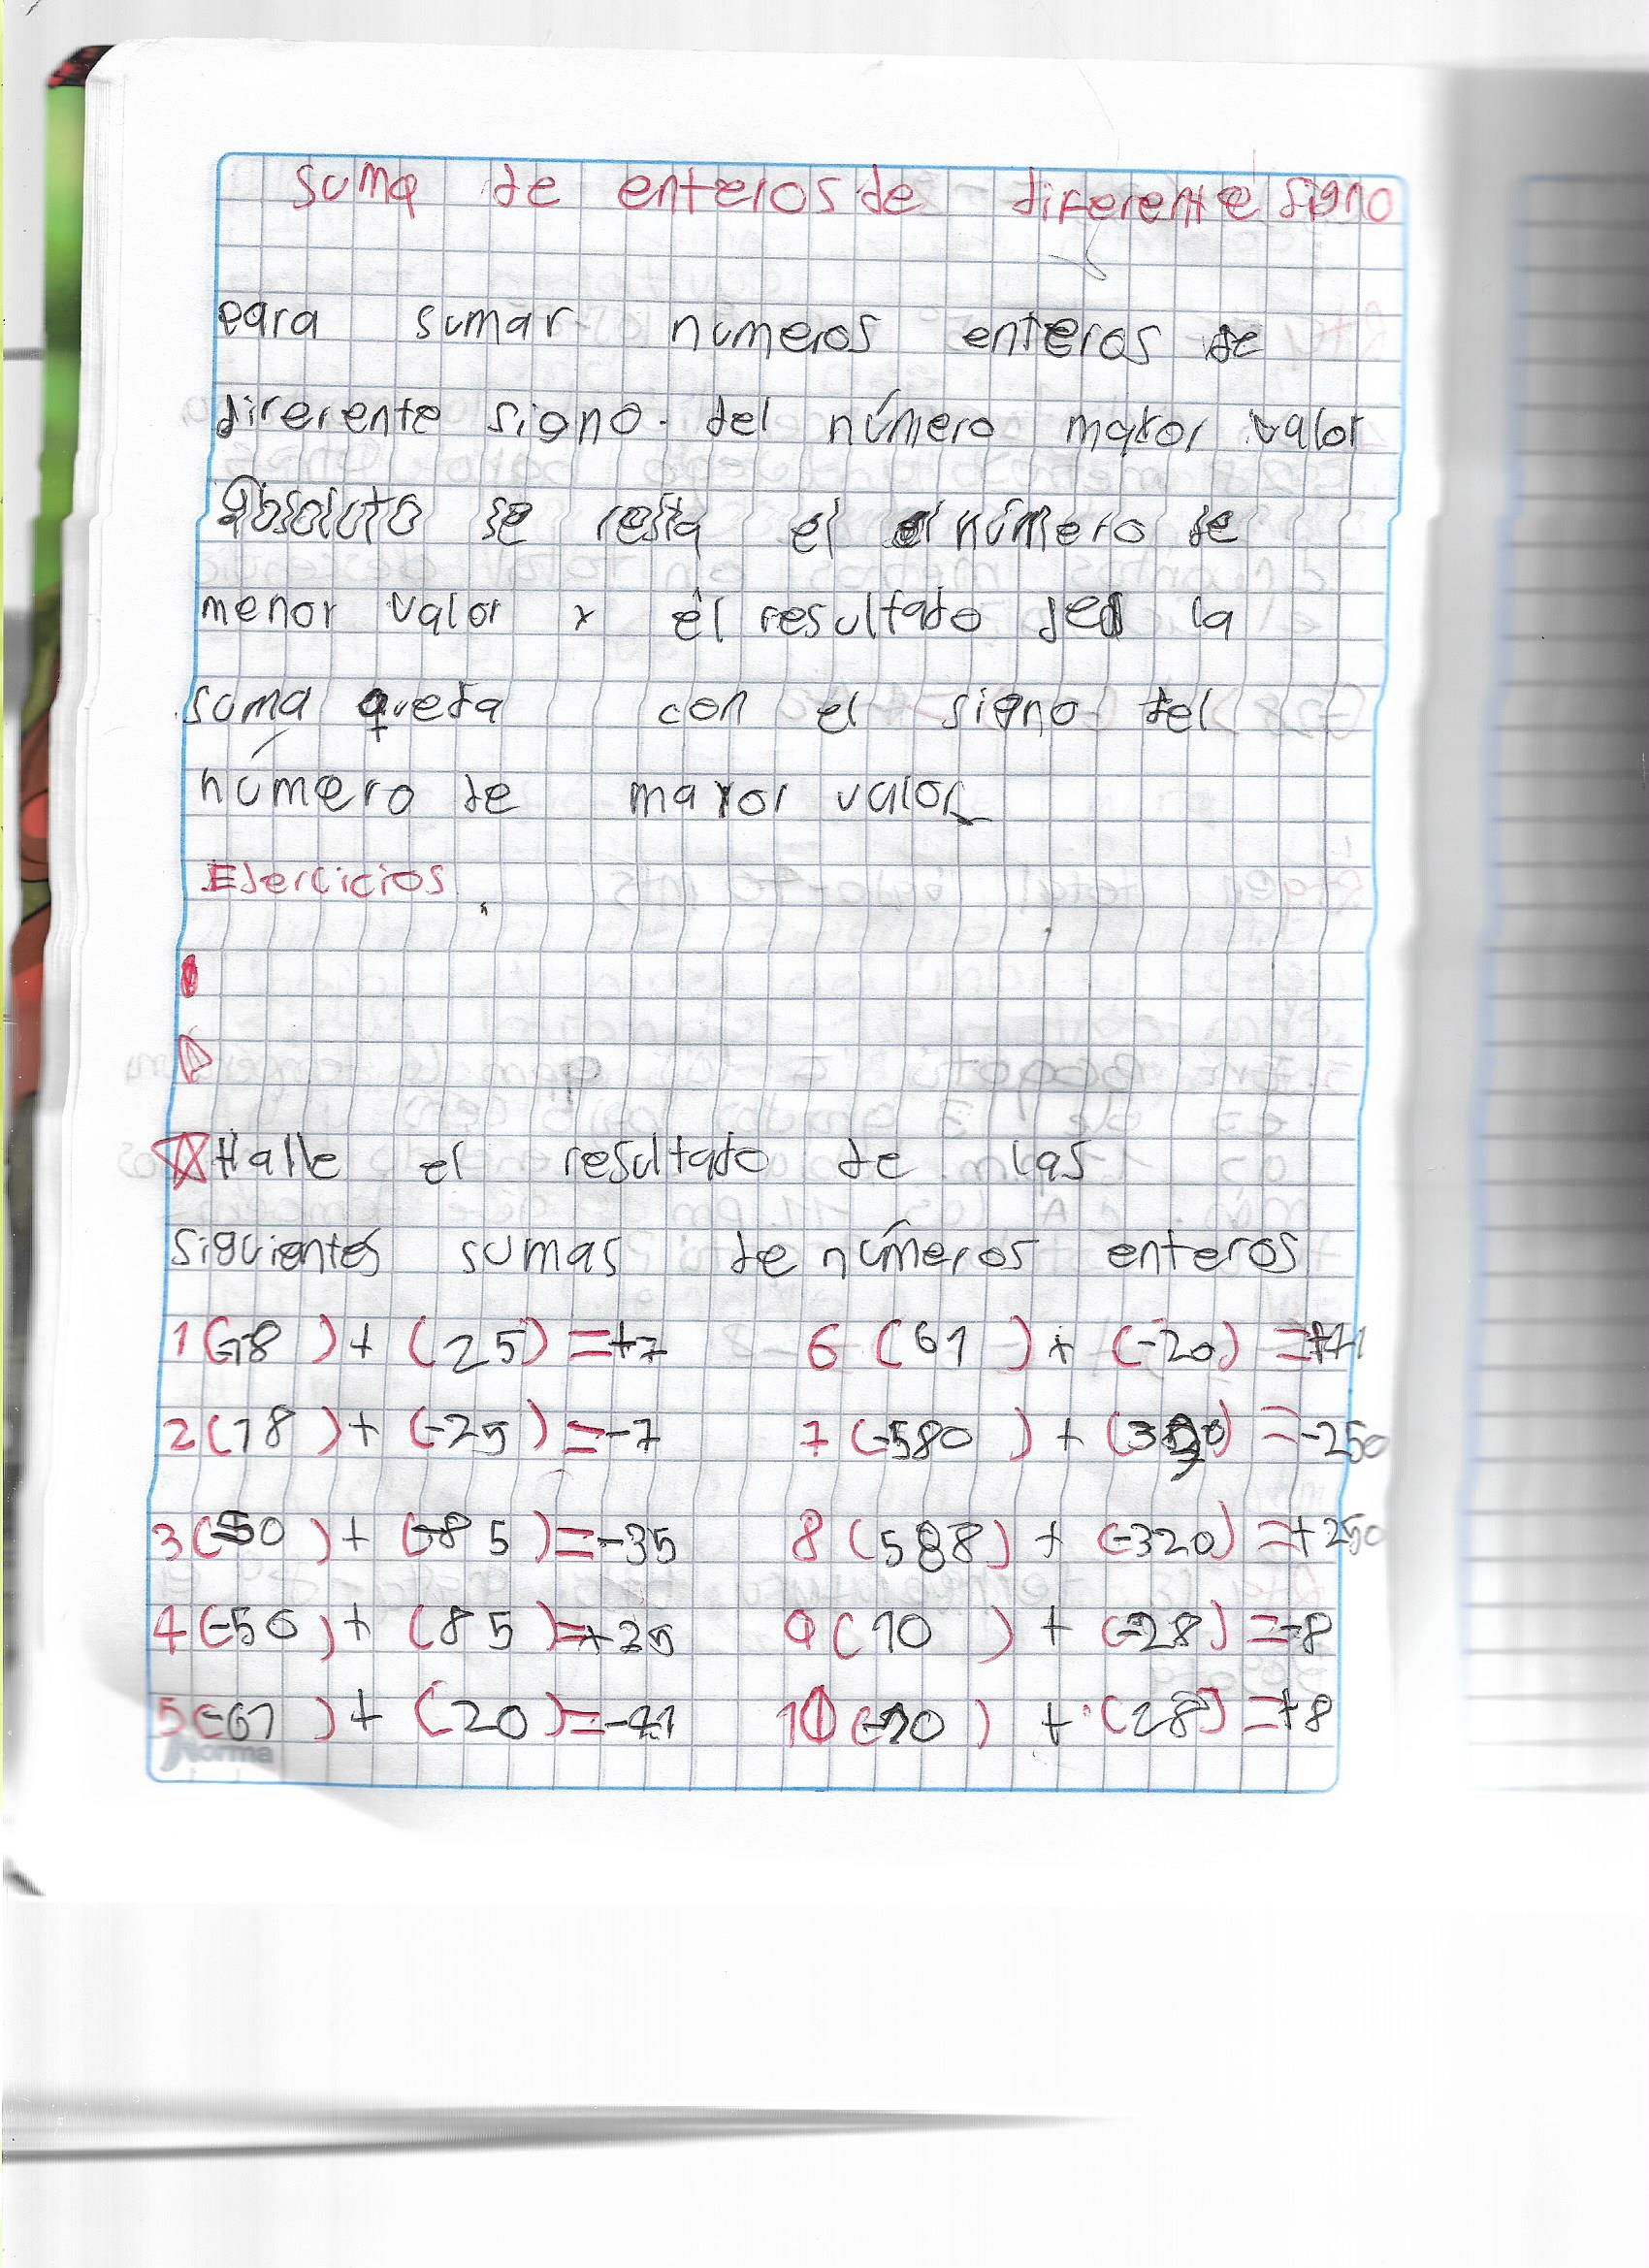 Suma de enteros de diferente signo
para sumar numeros enteros de
diferente signo. del número mayor valor
Absoluto se resta el número de
menor valor y el resultado la
suma queda con el signo del
número de mayor valor
Ejercicios
Halle el resultado de las
Siguientes sumas de números enteros
1 (-18) + (25) = +7 6 (61) + (-20) = +41
2 (18) + (-25) = -7 7 (-580) + ( ) = -250
3 (-50) + (-85) = -35 8 ( ) + (-320) = +250
4 (-50) + (85) = +35 9 (10) + (-28) = -8
5 (-61) + (20) = -41 10 (-10) + (28) = +8
Norma